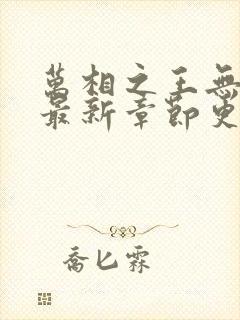 萬相之王無
最新章節更
喬匕霖